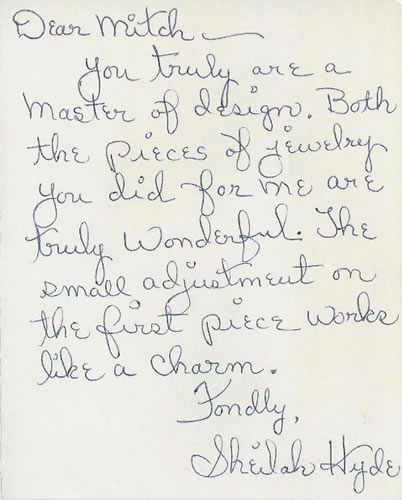 Dear Mitch —
You truly are a
master of design. Both
the pieces of jewelry
you did for me are
truly wonderful. The
small adjustment on
the first piece works
like a charm.
Fondly,
Sheilah Hyde